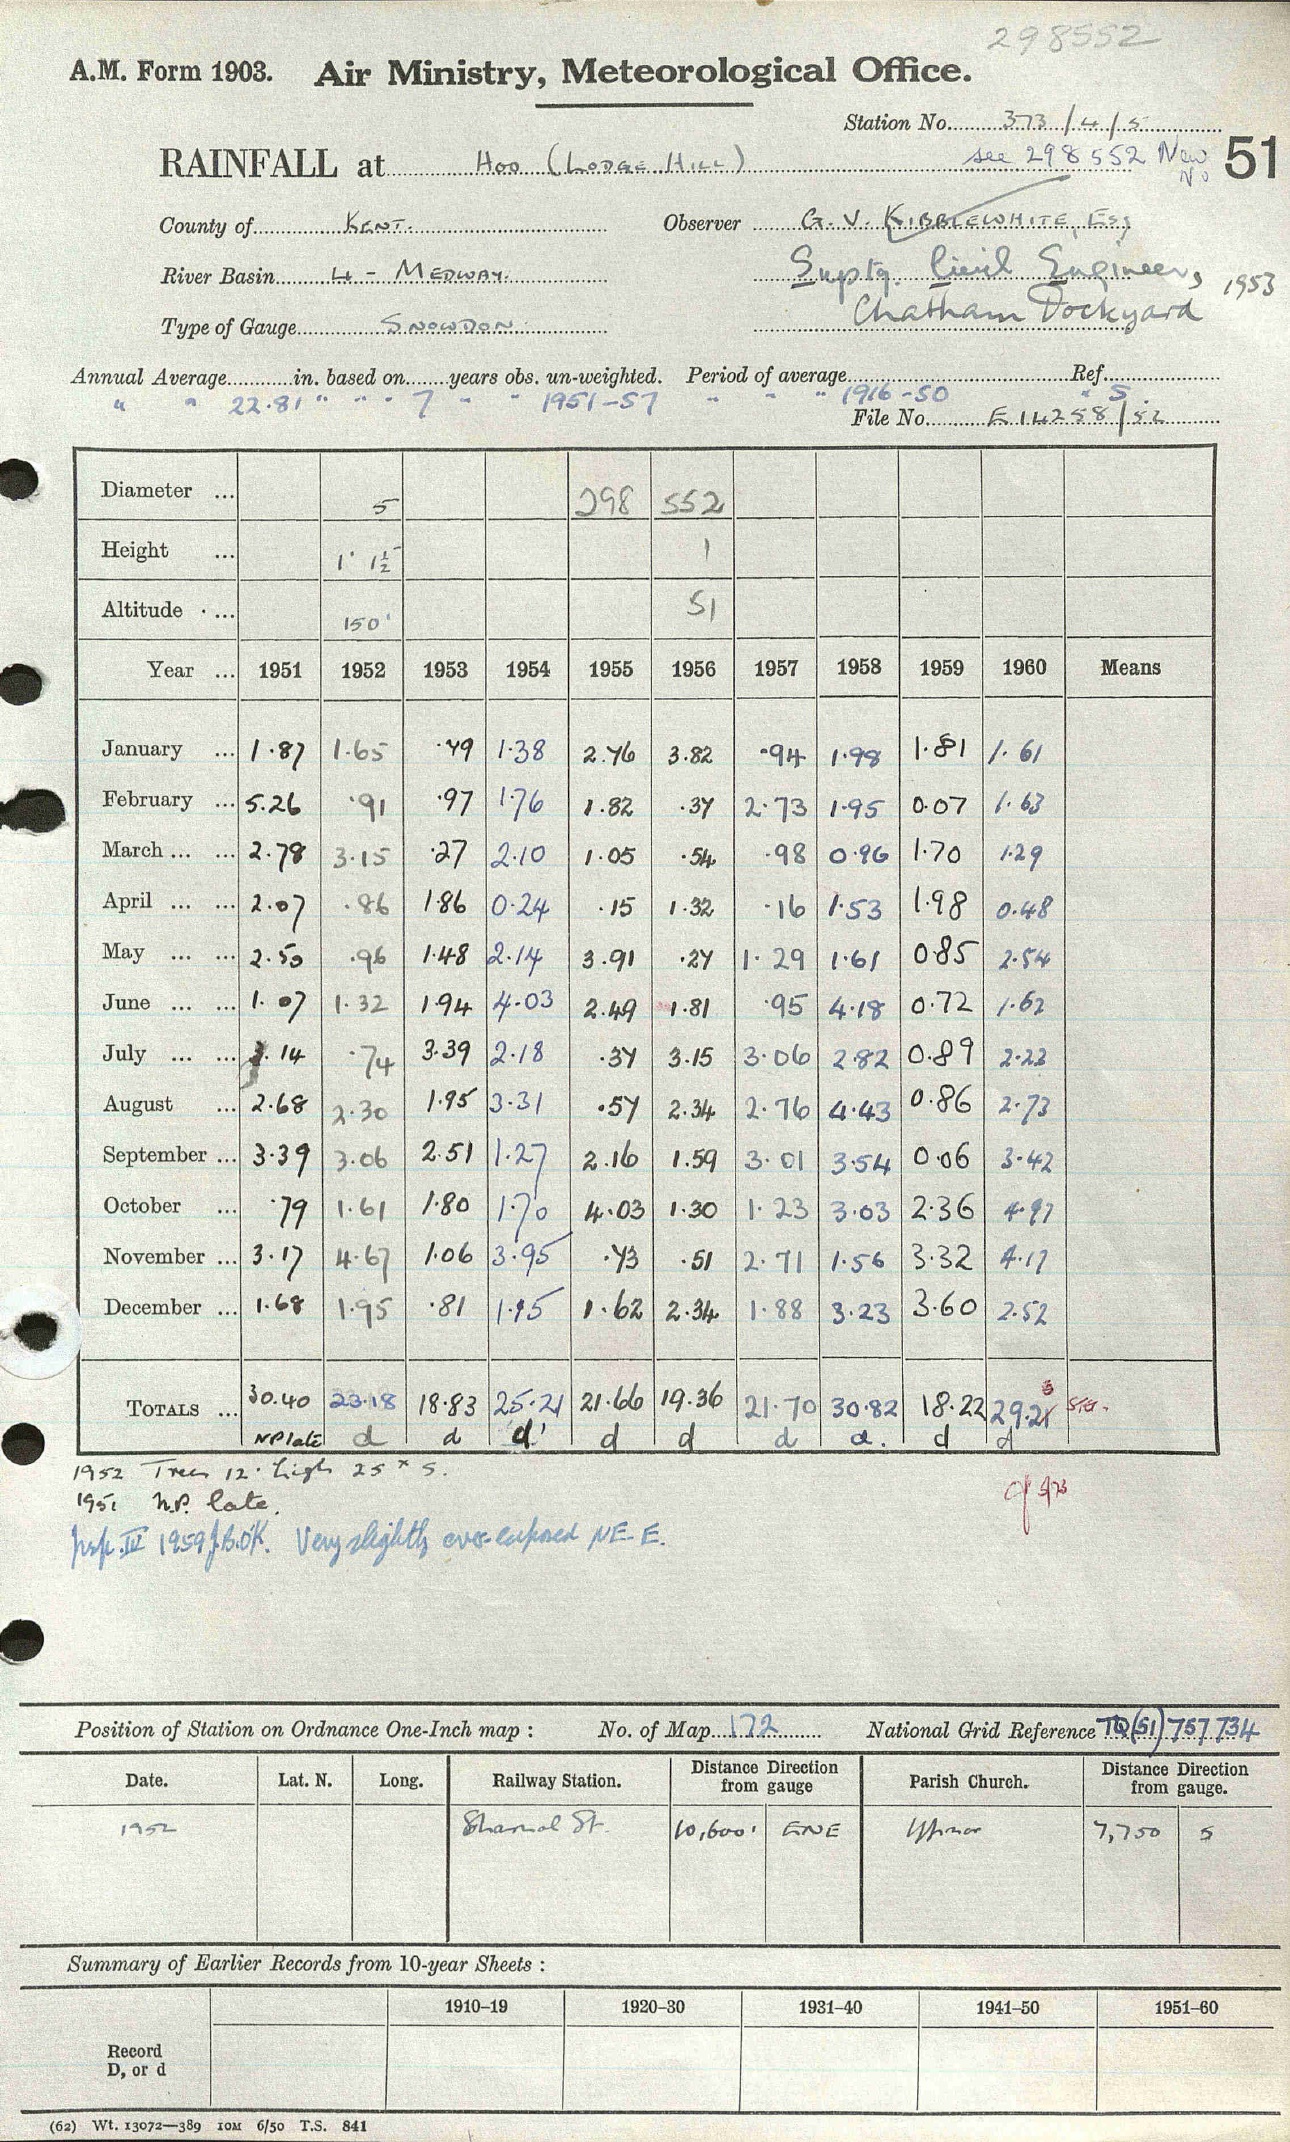 298552
A.M. Form 1903. Air Ministry, Meteorological Office.
Station No. 373/4/5
RAINFALL at Hoo (Lodge Hill) see 298552 New No 51
County of Kent. Observer G. V. Kibblewhite, Esq
River Basin 4 - Medway. Suptg. Civil Engineer, 1953
Type of Gauge Snowdon Chatham Dockyard
Annual Average in. based on years obs. un-weighted. Period of average Ref.
" " 22.81 " " " 7 " " 1951-57 " " " 1916-50 " 5.
File No. E14258/52
Diameter ... 5 298 552
Height ... 1' 1½ 1
Altitude ... 150' 51
Year ... 1951 1952 1953 1954 1955 1956 1957 1958 1959 1960 Means
January ... 1.87 1.65 .79 1.38 2.76 3.82 .94 1.98 1.81 1.61
February ... 5.26 .91 .97 1.76 1.82 .37 2.73 1.95 0.07 1.63
March ... ... 2.78 3.15 .27 2.10 1.05 .54 .98 0.96 1.70 1.29
April ... ... 2.07 .86 1.86 0.24 .15 1.32 .16 1.53 1.98 0.48
May ... ... 2.50 .96 1.48 2.14 3.91 .27 1.29 1.61 0.85 2.54
June ... ... 1.07 1.32 1.94 4.03 2.49 1.81 .95 4.18 0.72 1.62
July ... ... 3.14 .74 3.39 2.18 .37 3.15 3.06 2.82 0.89 2.22
August ... 2.68 2.30 1.95 3.31 .57 2.34 2.76 4.43 0.86 2.73
September ... 3.39 3.06 2.51 1.27 2.16 1.59 3.01 3.54 0.06 3.42
October ... .79 1.61 1.80 1.70 4.03 1.30 1.23 3.03 2.36 4.97
November ... 3.17 4.67 1.06 3.95 .73 .51 2.71 1.56 3.32 4.17
December ... 1.68 1.95 .81 1.15 1.62 2.34 1.88 3.23 3.60 2.52
3
Totals ... 30.40 23.18 18.83 25.21 21.66 19.36 21.70 30.82 18.22 29.21
NP late d d d' d d d d. d d
1952 Trees 12' high 25 x S.
1951 N.P. late.
Insp. IV 1959 J.B.O'K. Very slightly over-exposed NE-E.
Position of Station on Ordnance One-Inch map : No. of Map 172 National Grid Reference TQ(51) 757734
Date. Lat. N. Long. Railway Station. Distance Direction from gauge Parish Church. Distance Direction from gauge.
1952 Sharnal St. 10,600' ENE Upnor 7,750 S
Summary of Earlier Records from 10-year Sheets :
1910–19 1920–30 1931–40 1941–50 1951–60
Record
D, or d
(62) Wt. 13072—389 10M 6/50 T.S. 841